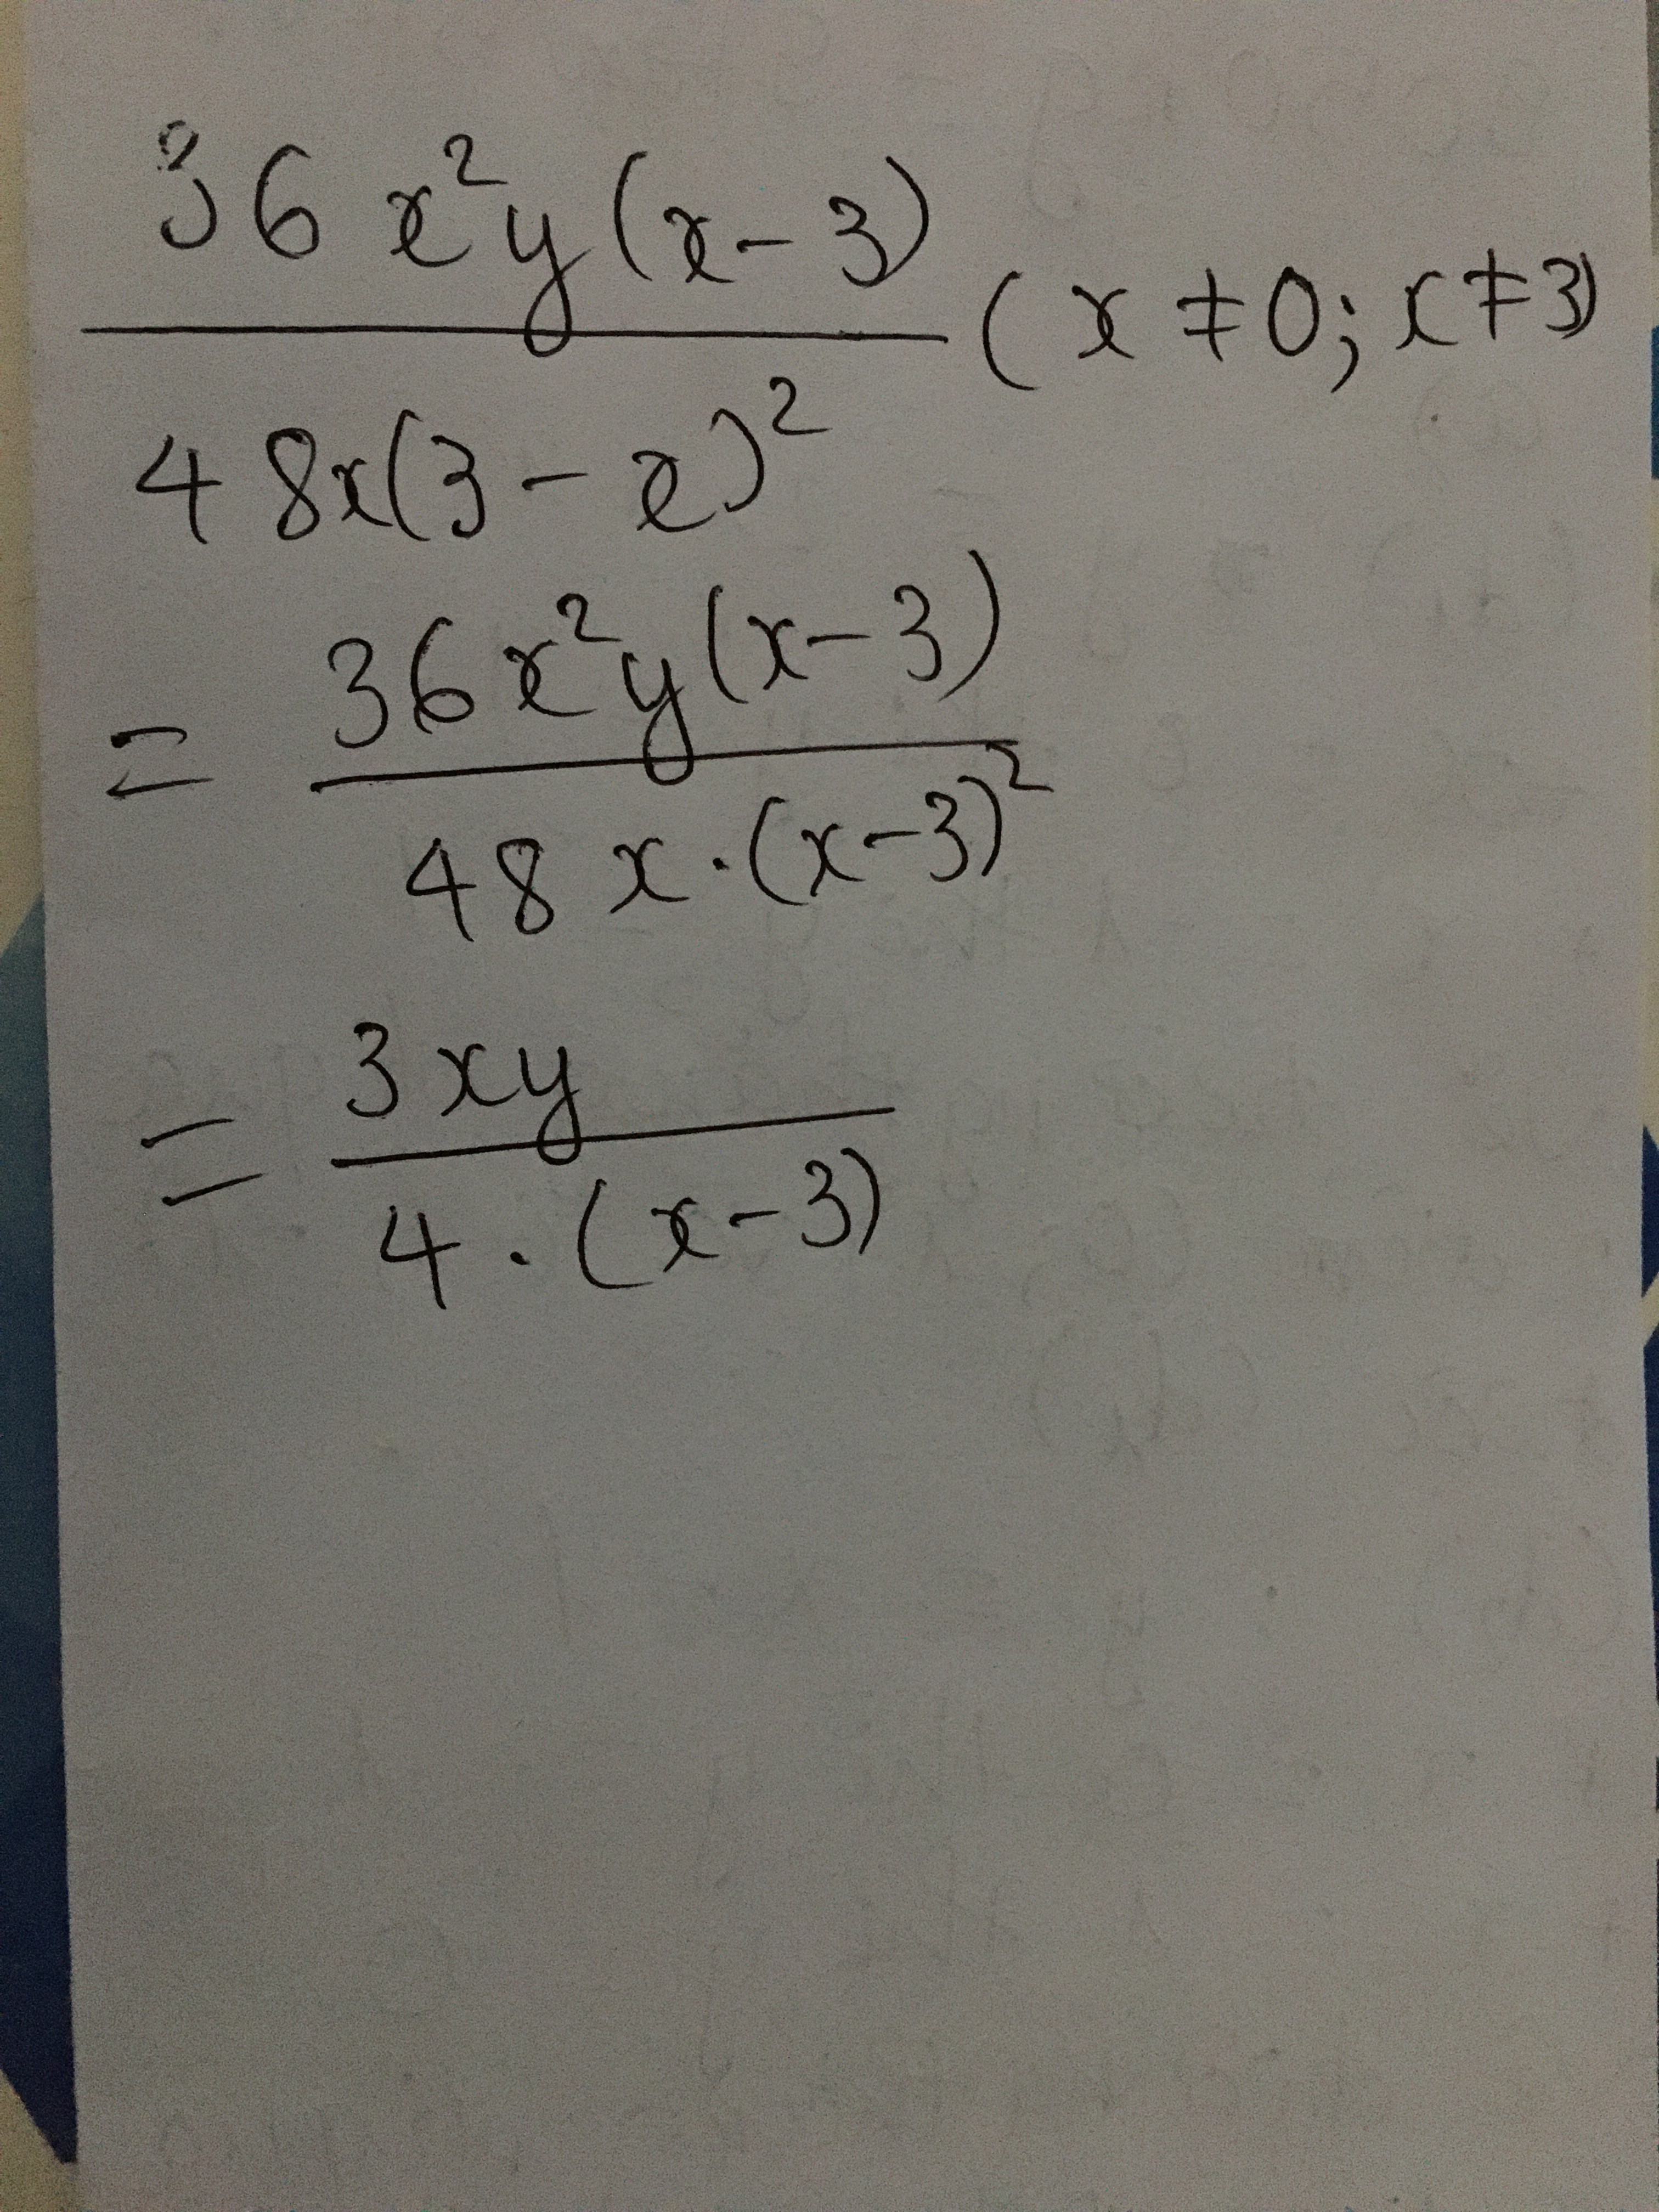 36x²y(x-3)
(x≠0; x≠3)
48x(3-x)²
= 36x²y(x-3)
48x.(x-3)²
= 3xy
4.(x-3)